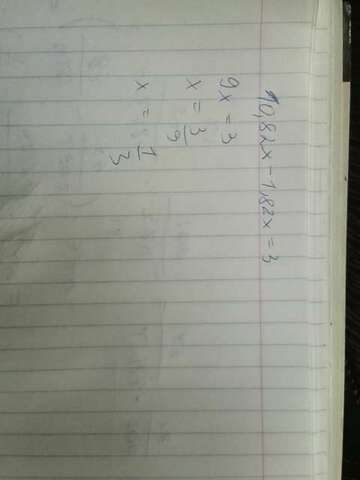 10,82x - 1,82x = 3
9x = 3
x = 3/9
x = 1/3